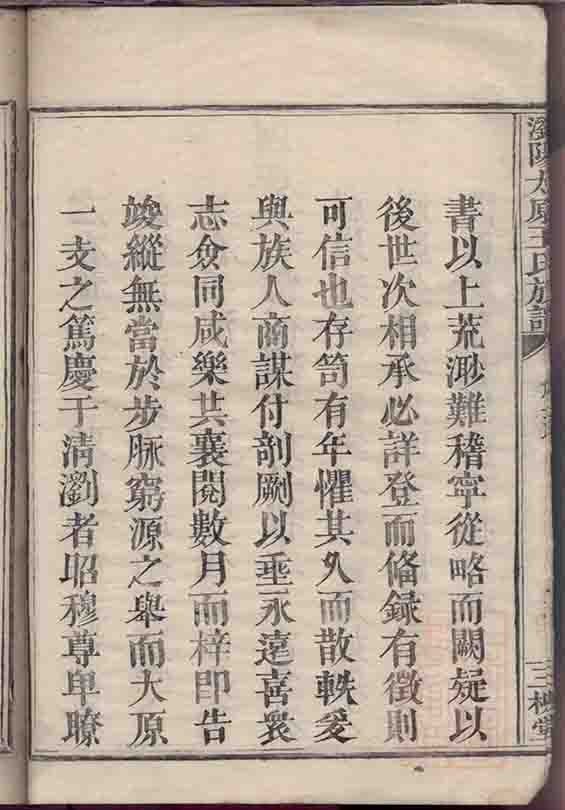 瀏陽太原王氏族譜
三槐堂
書以上荒渺難稽寧從略而闕疑以
後世次相承必詳登而俻録有徵則
可信也存笥有年懼其久而散軼爰
與族人商謀付剞劂以垂永遠喜衆
志僉同咸樂共襄閱數月而梓即告
竣縱無當於步脉窮源之舉而大原
一支之篤慶于清瀏者昭穆尊卑瞭